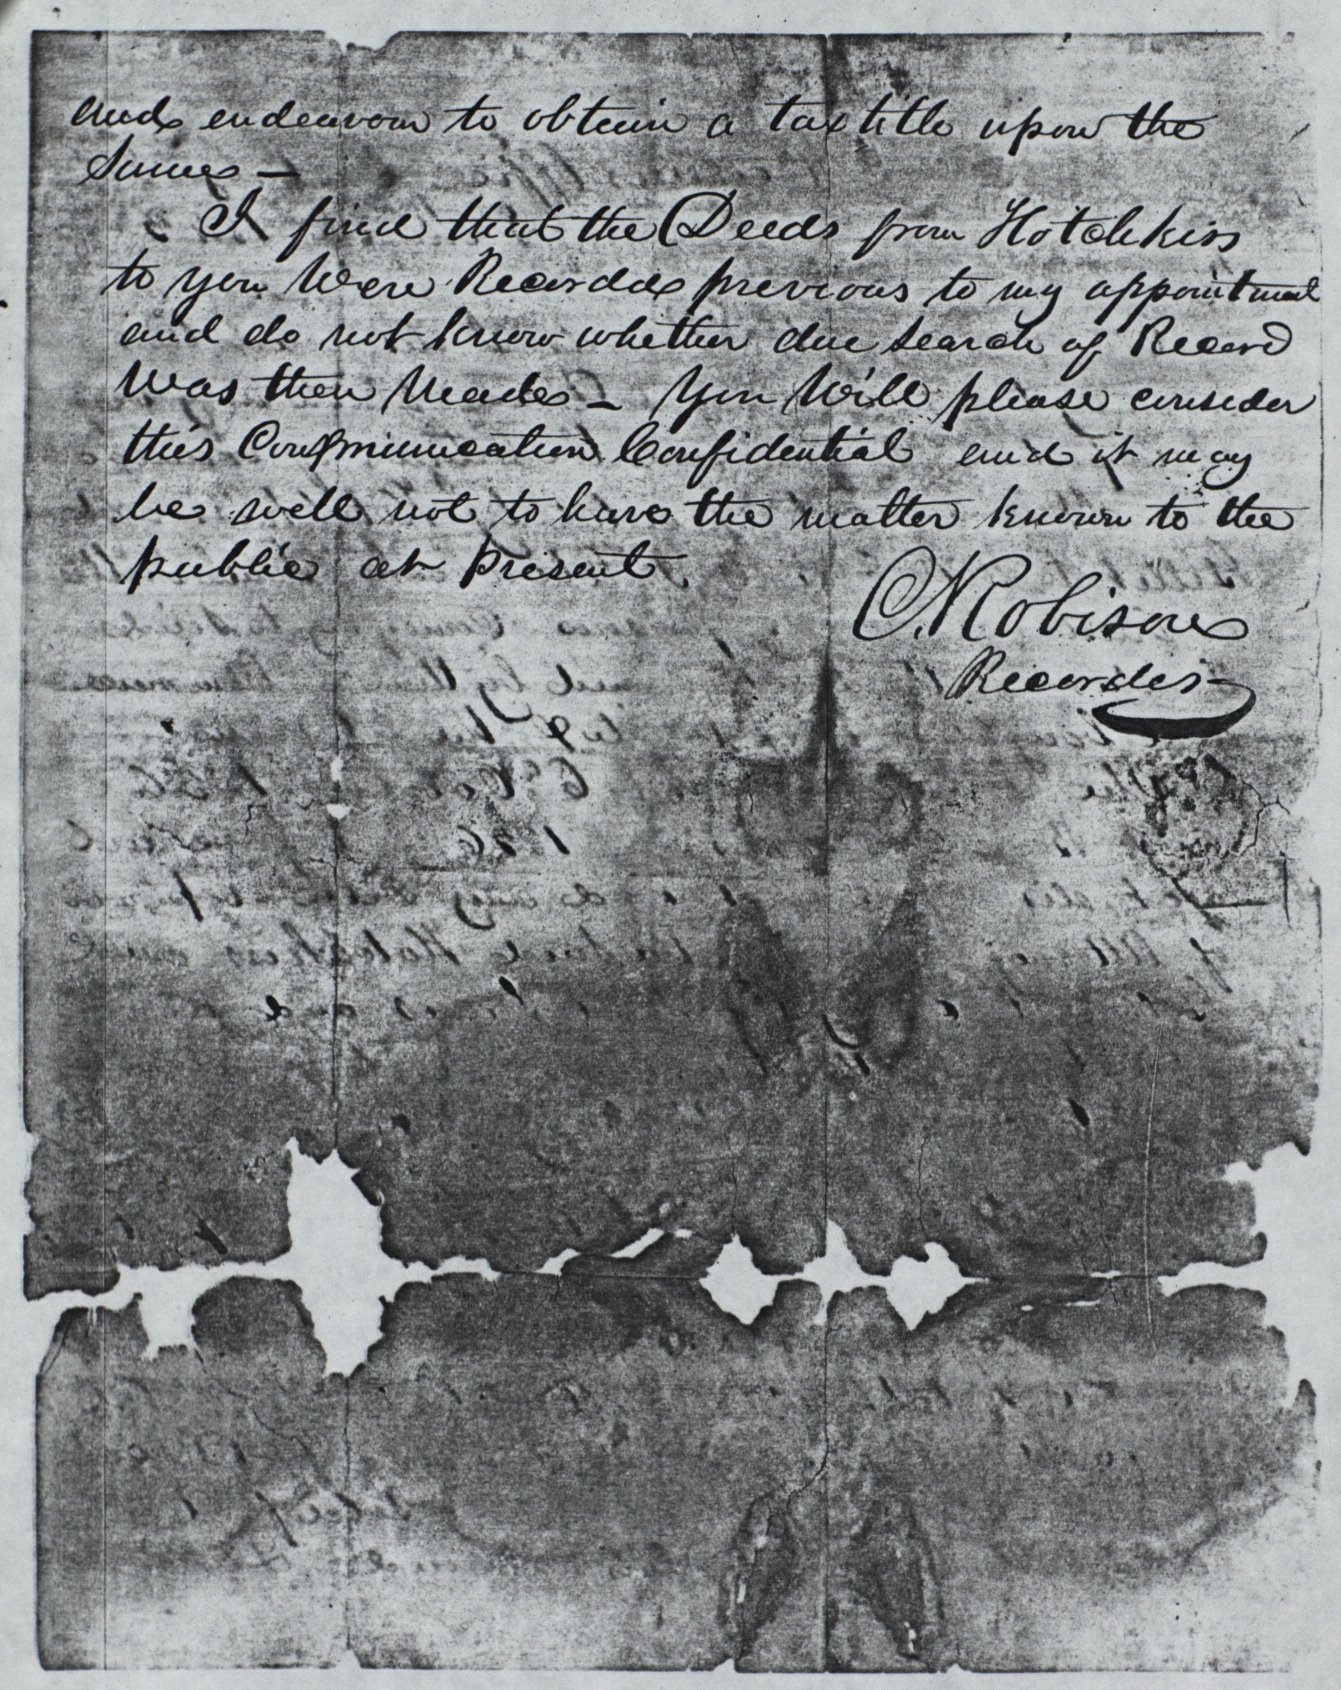 and endeavour to obtain a tax title upon the
Same —
I find that the Deeds from Hotchkiss
to you Were Recorded previous to my appointment
and do not know whether due search of Record
Was then Made — You Will please consider
this Communication Confidential and it may
be well not to have the matter known to the
public at Present
C. Robison
Recorder